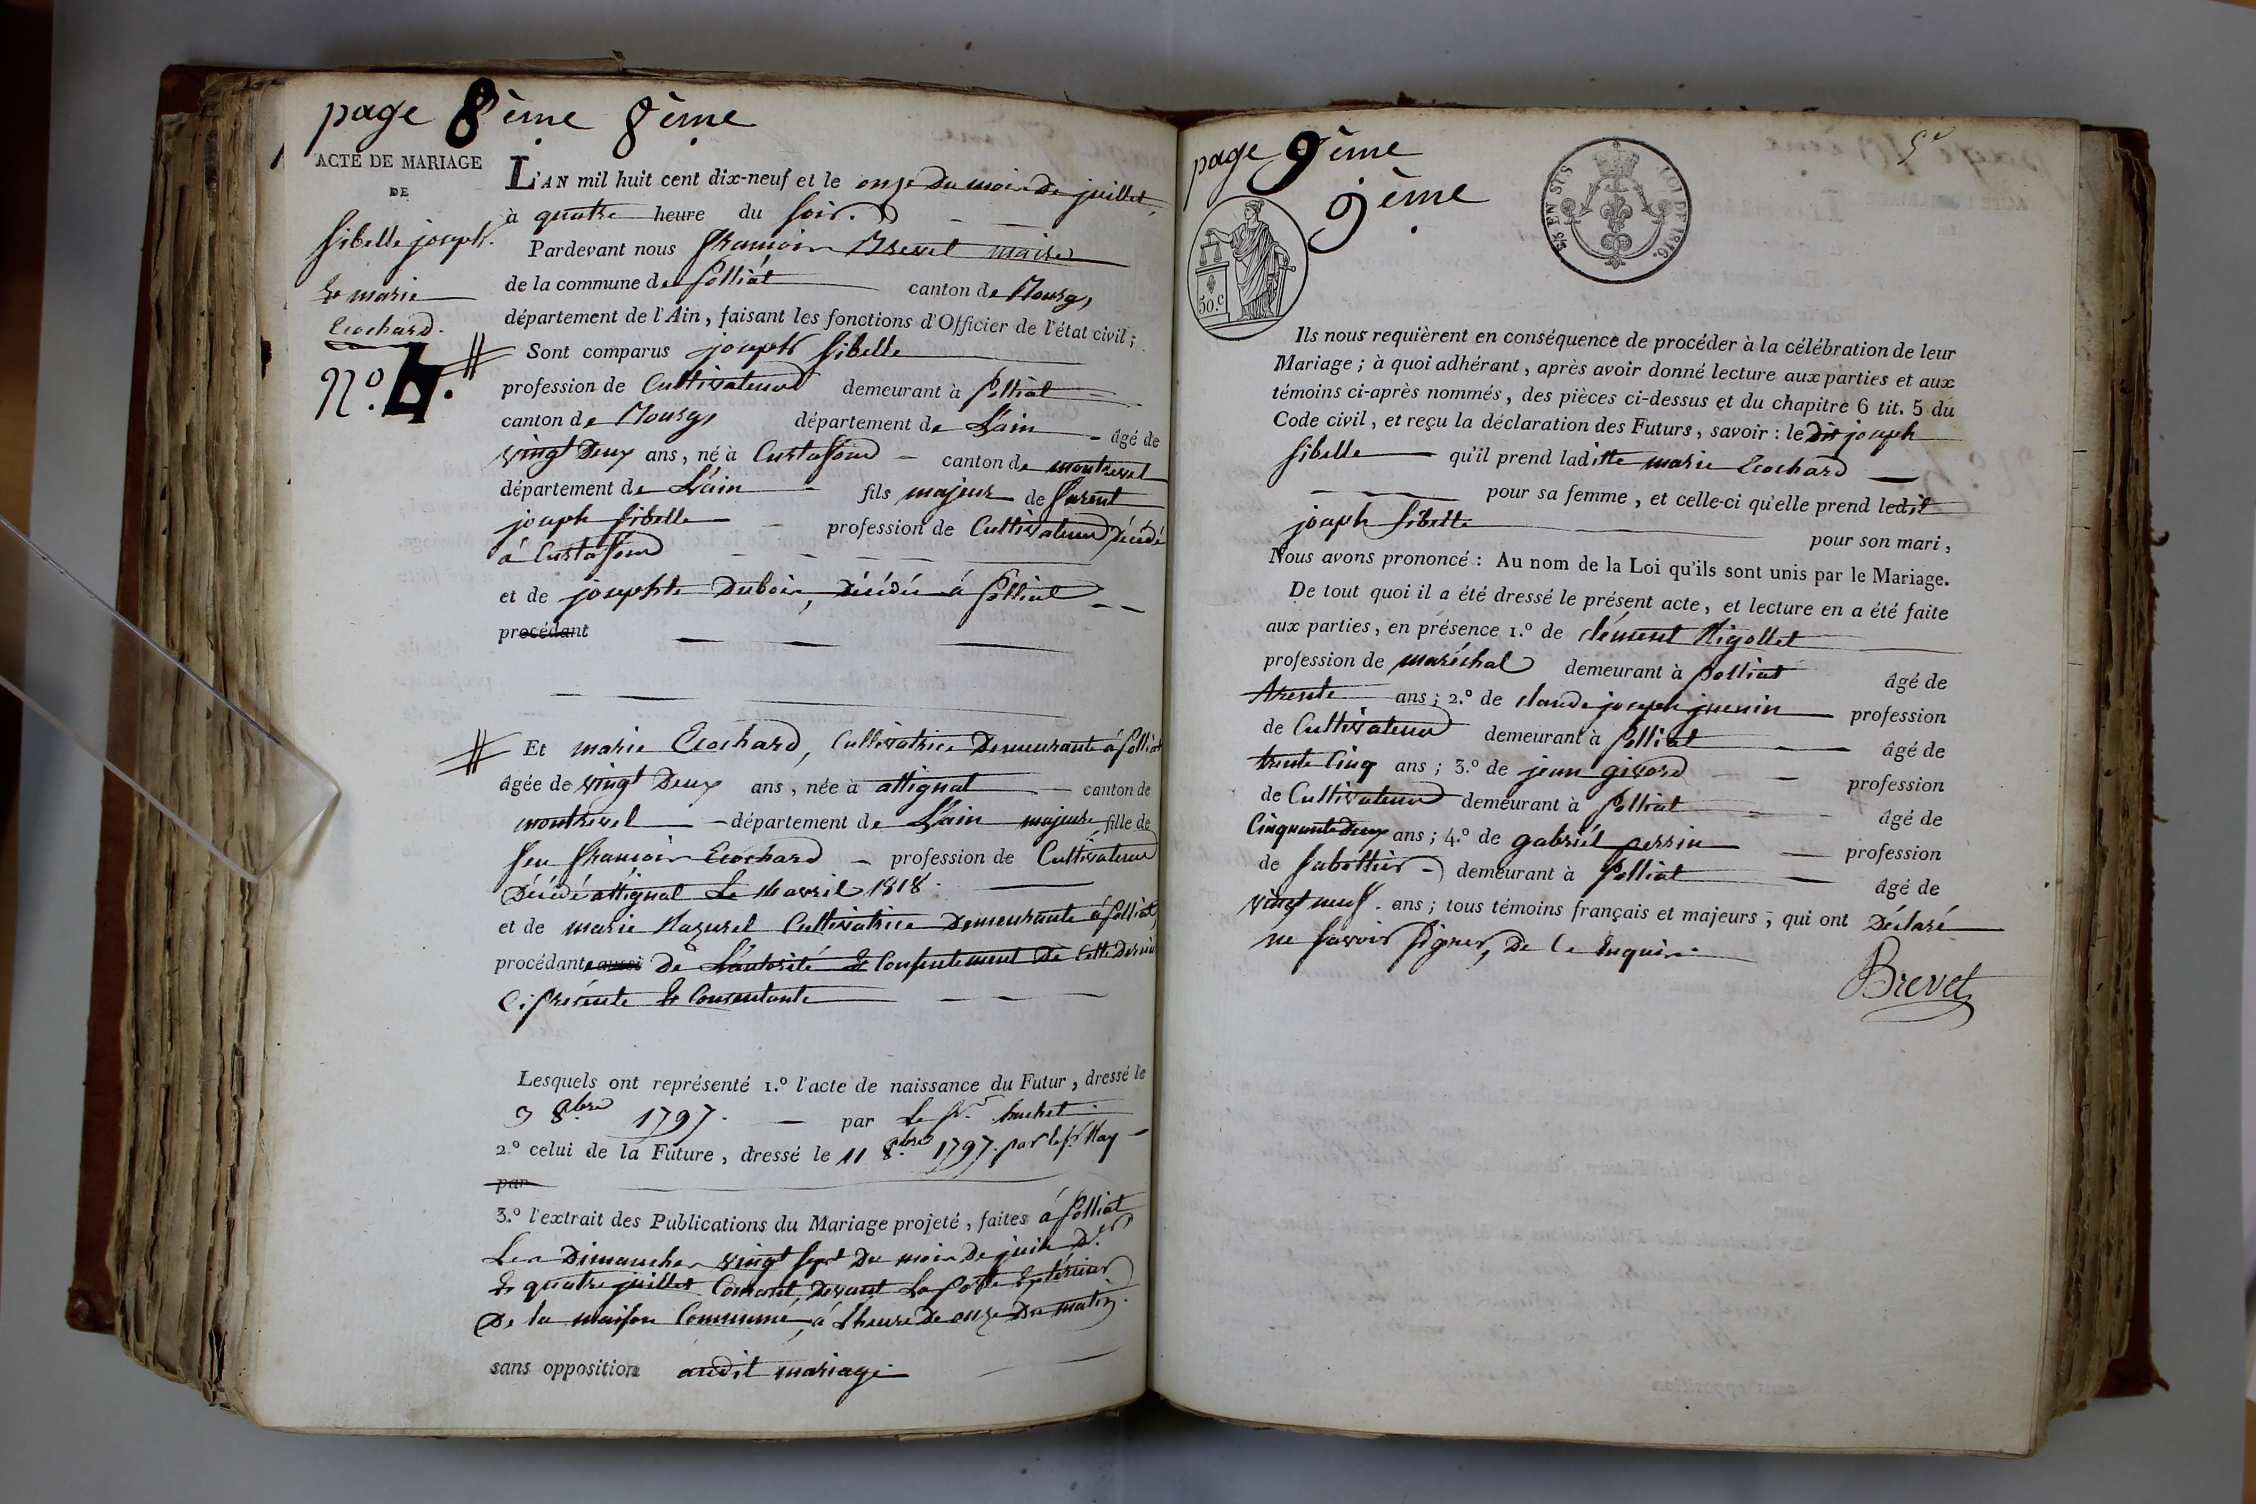 page 8ème 8ème
ACTE DE MARIAGE
DE
Sibelle joseph.
Et marie
Ecochard.
N.º 4.
L'AN mil huit cent dix-neuf et le onze du mois de juillet,
à quatre heure du soir.
Pardevant nous francois Brevet maire
de la commune de polliat canton de Bourg,
département de l'Ain, faisant les fonctions d'Officier de l'état civil;
Sont comparus joseph Sibelle
profession de Cultivateur demeurant à polliat
canton de Bourg, département de L'ain âgé de
vingt Deux ans, né à Curtafond canton de montrevel
département de L'ain fils majeur de
joseph Sibelle profession de Cultivateur Décédé
à Curtafond
et de josephte Dubois, Décédée à polliat
procédant
Et marie Ecochard, Cultivatrice Demeurante à polliat
âgée de vingt Deux ans, née à attignat canton de
montrevel département de L'ain majeure fille de
feu francois Ecochard profession de Cultivateur
Décédé attignat Le 16 avril 1818.
et de marie Mazurel Cultivatrice Demeurante à polliat,
procédante aussi De L'autorité Et Consentement De Cette Dernière
Ci présente Et Consentante
Lesquels ont représenté 1.º l'acte de naissance du Futur, dressé le
3 8.bre 1797. par Le Sr. huchet
2.º celui de la Future, dressé le 11 8.bre 1797. par le Sr. May
par
3.º l'extrait des Publications du Mariage projeté, faites à polliat
Les Dimanches vingt sept Du mois De juin D.er
Et quatre juillet Courant, Devant La porte Extérieur
De la maison Commune, à L'heure De onze Du matin.
sans opposition audit mariage.
page 9ème
9ème
5e
EN SUS
LOI DE 1816.
50.c
Ils nous requièrent en conséquence de procéder à la célébration de leur
Mariage; à quoi adhérant, après avoir donné lecture aux parties et aux
témoins ci-après nommés, des pièces ci-dessus et du chapitre 6 tit. 5 du
Code civil, et reçu la déclaration des Futurs, savoir: le Dit joseph
Sibelle qu'il prend laditte marie Ecochard
pour sa femme, et celle-ci qu'elle prend ledit
joseph Sibelle pour son mari,
Nous avons prononcé: Au nom de la Loi qu'ils sont unis par le Mariage.
De tout quoi il a été dressé le présent acte, et lecture en a été faite
aux parties, en présence 1.º de clément Rigollet
profession de maréchal demeurant à polliat âgé de
trente ans; 2.º de claude joseph juenin profession
de Cultivateur demeurant à polliat âgé de
trente Cinq ans; 3.º de jean givord profession
de Cultivateur demeurant à polliat âgé de
Cinquante Deux ans; 4.º de gabriel perrin profession
de Sabottier demeurant à polliat âgé de
vingt neuf. ans; tous témoins français et majeurs, qui ont Déclaré
ne Savoir Signer, De Ce Enquis.
Brevet